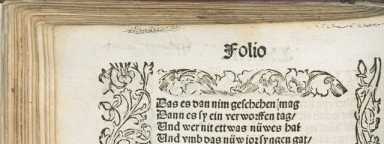 Folio
Das es dan nim geschehen mag
Dann es sy ein verworffen tag/
Und wer nit ettwas nüwes hat
Und vmb das nüw jor syngen gat/